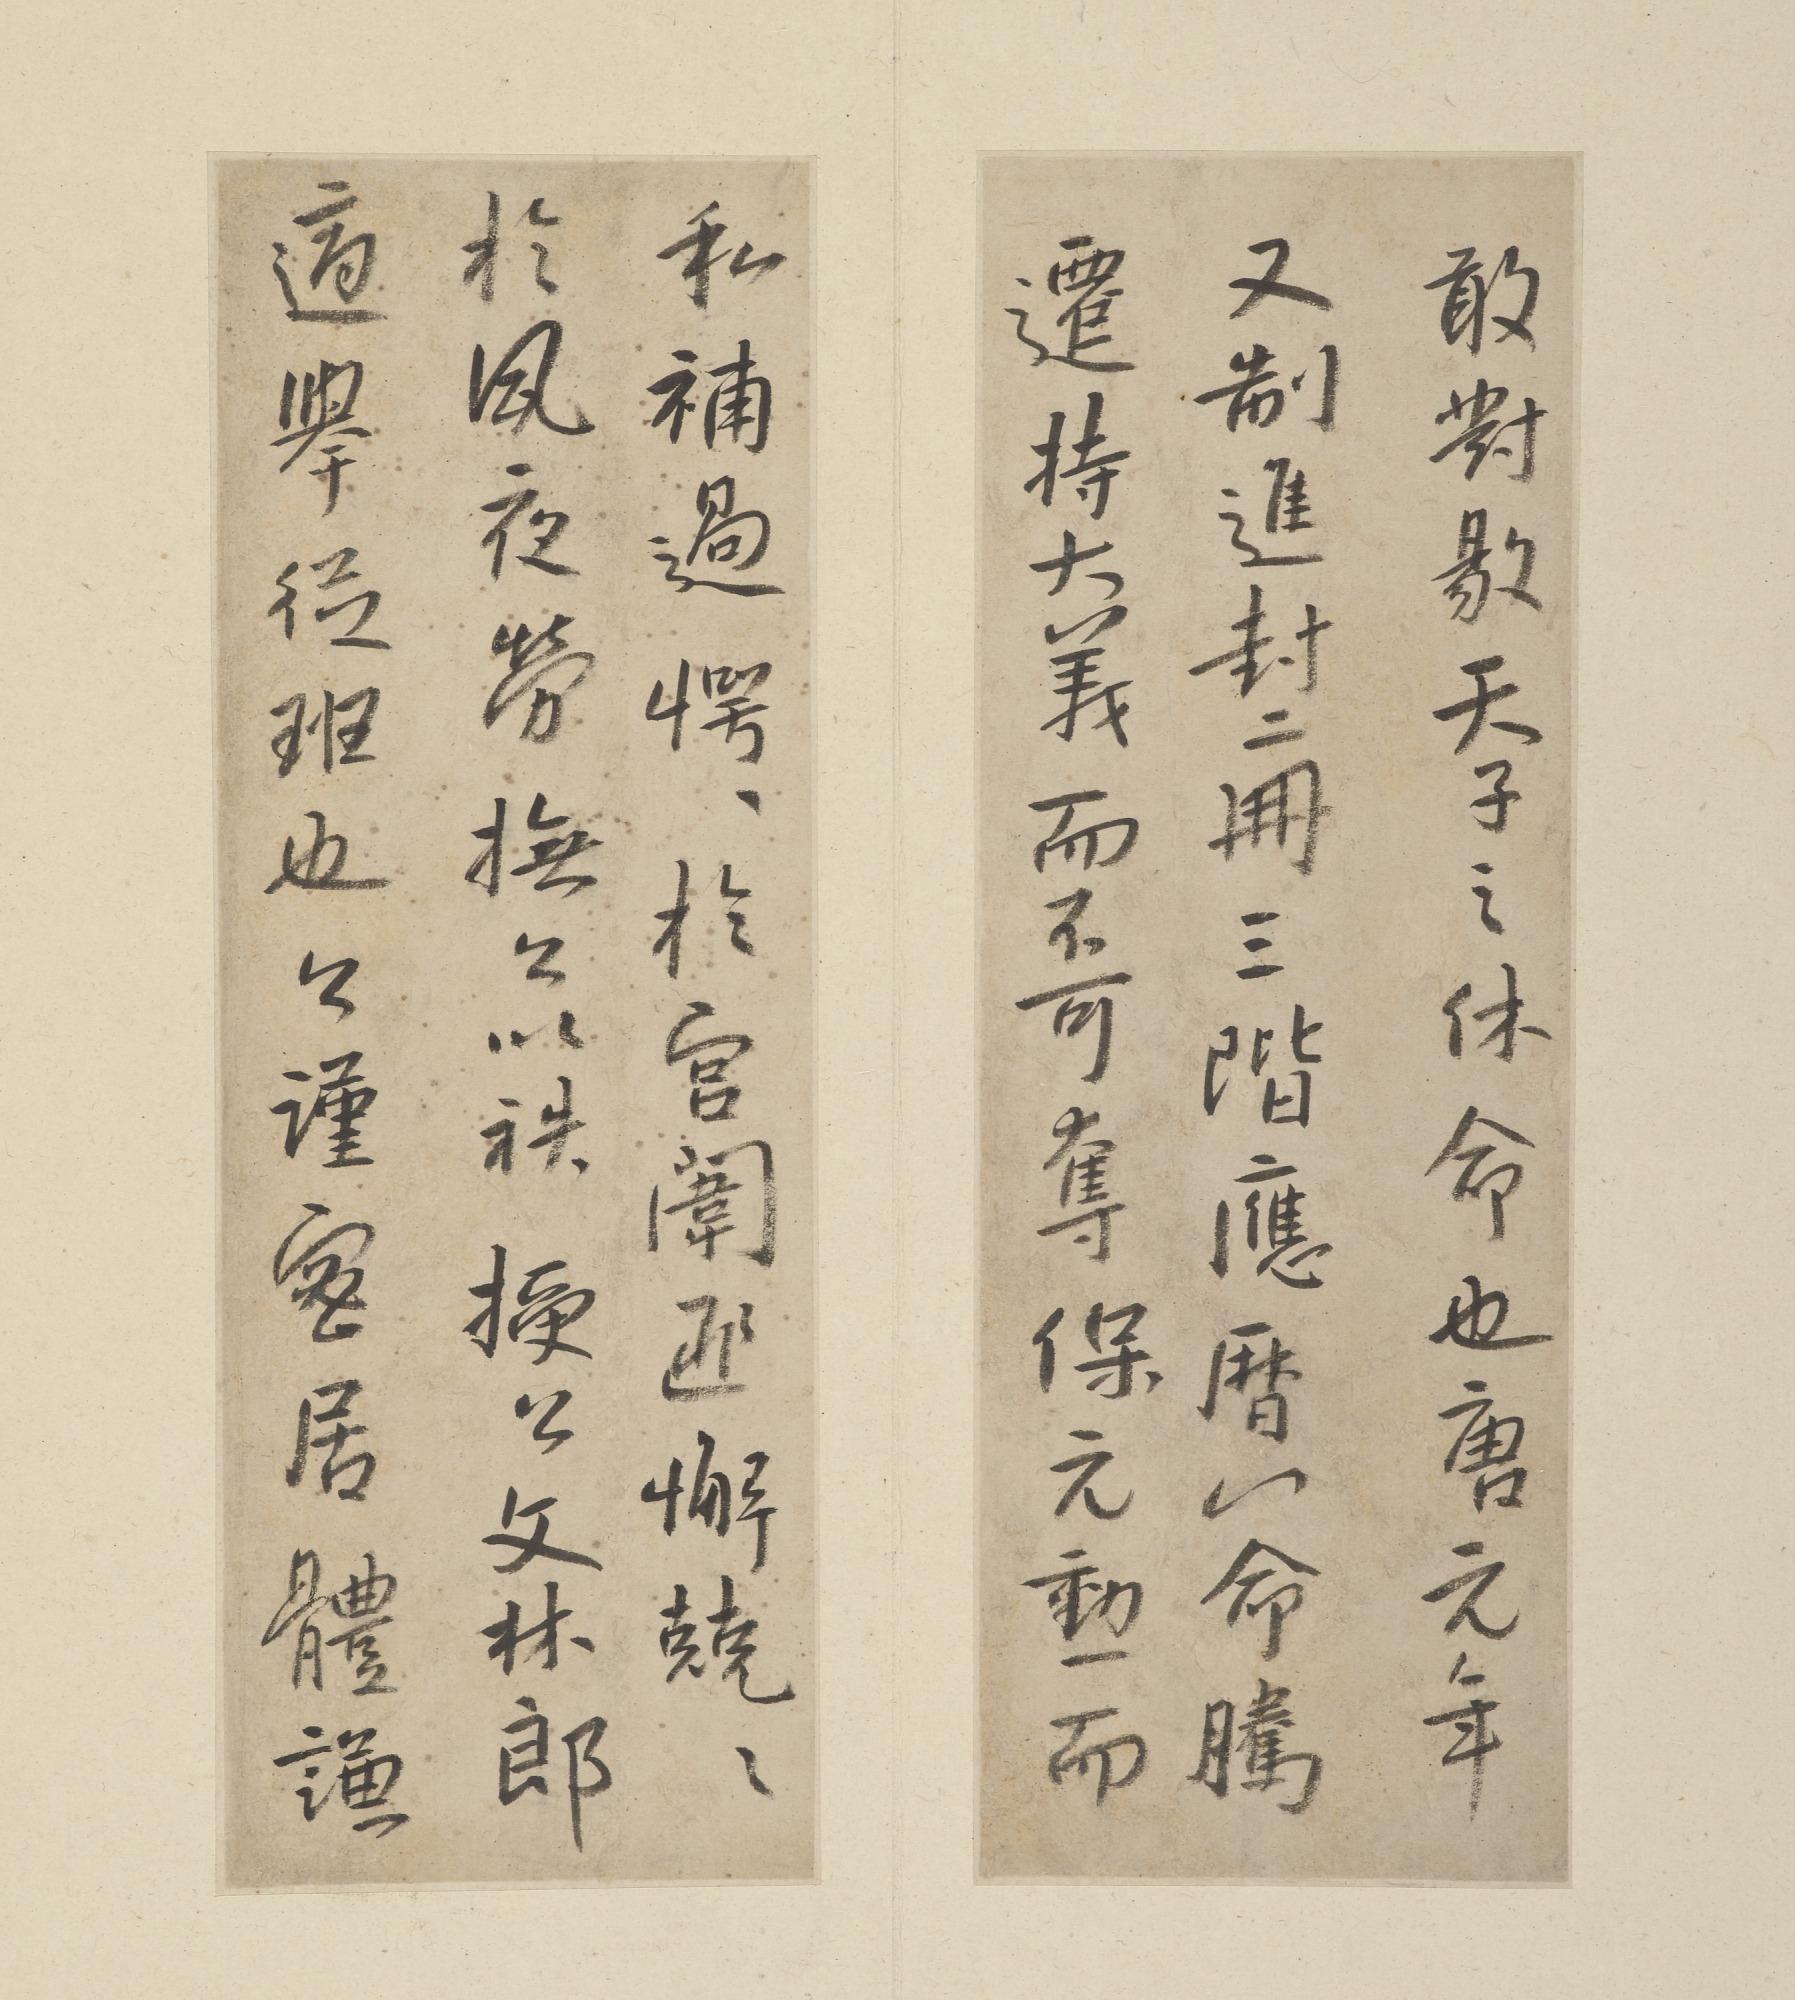 敢對敭天子之休命也唐元年
又制進封二冊三階應曆以命騰
遷持大義而不可奪保元勳而
私補過愕、於宮闈匪懈兢〻
於夙夜勞撫公以秩授公文林郎
適舉從班也公謹密居體謙